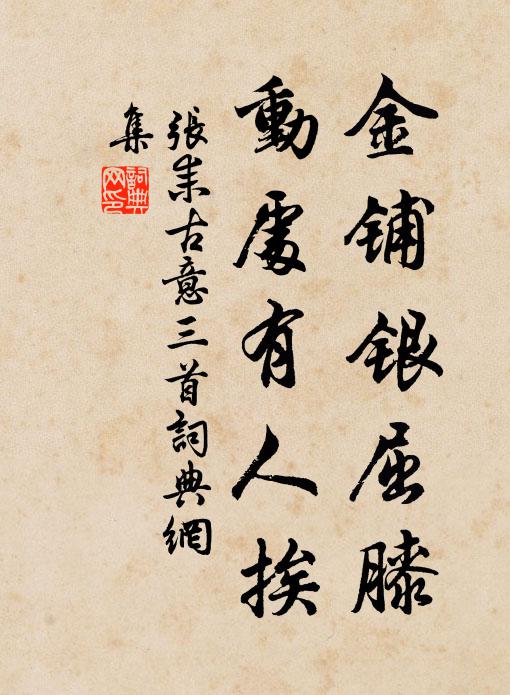 金铺银屈膝
動處有人挨
張耒古意三首詞典網
集
詞典
网印